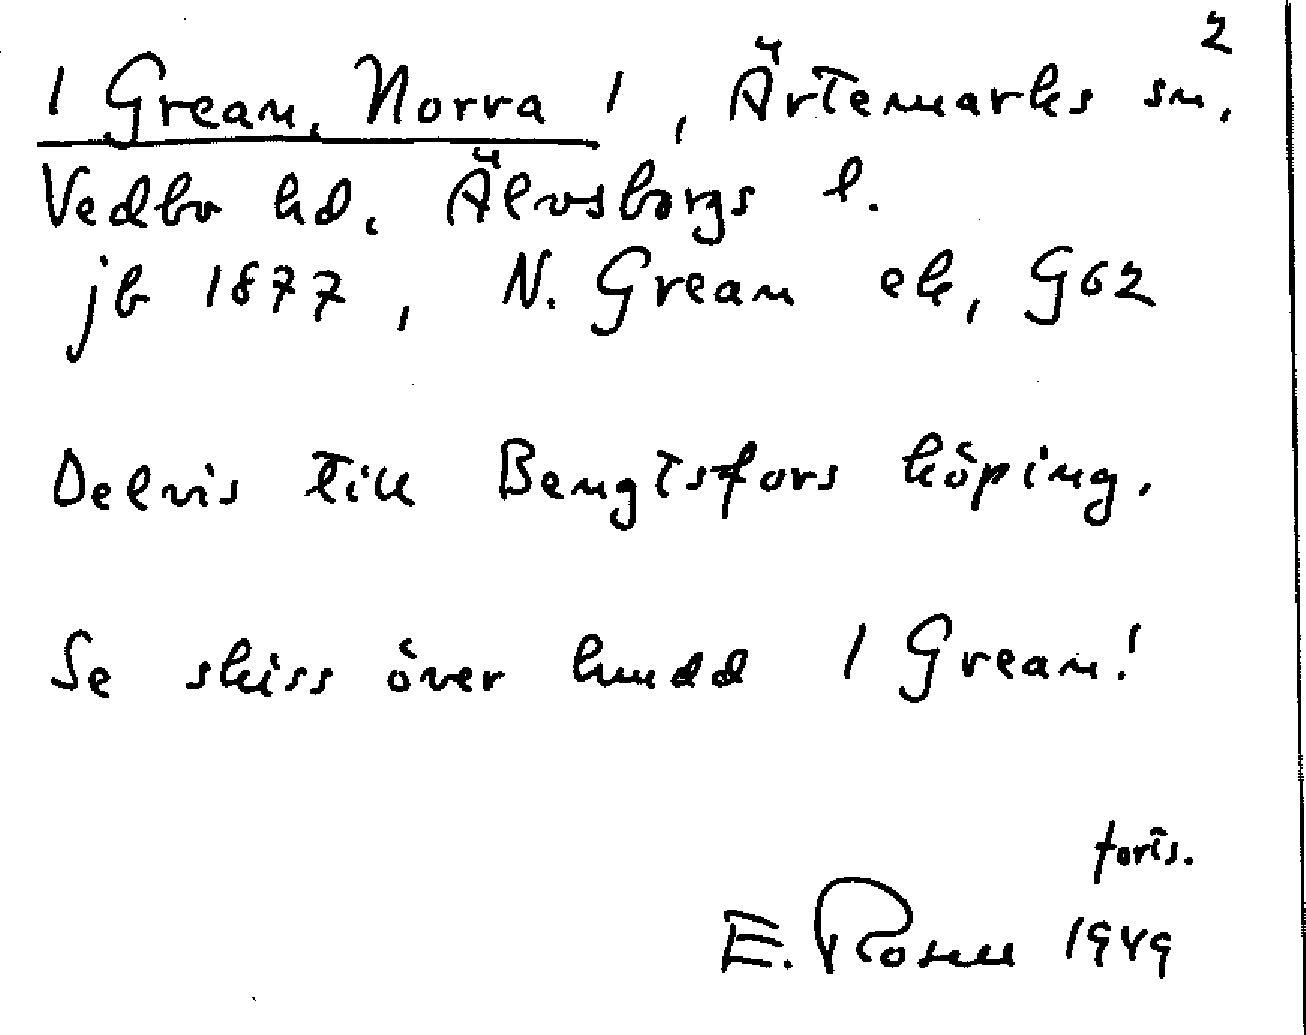 2
/ Grean, Norra /, Ärtemarks sn,
Vedbo hd, Älvsborgs l.
jb 1877, N. Grean ek, G62
Delvis till Bengtsfors köping.
Se skiss över huvud / Grean!
forts.
E. Rosell 1949